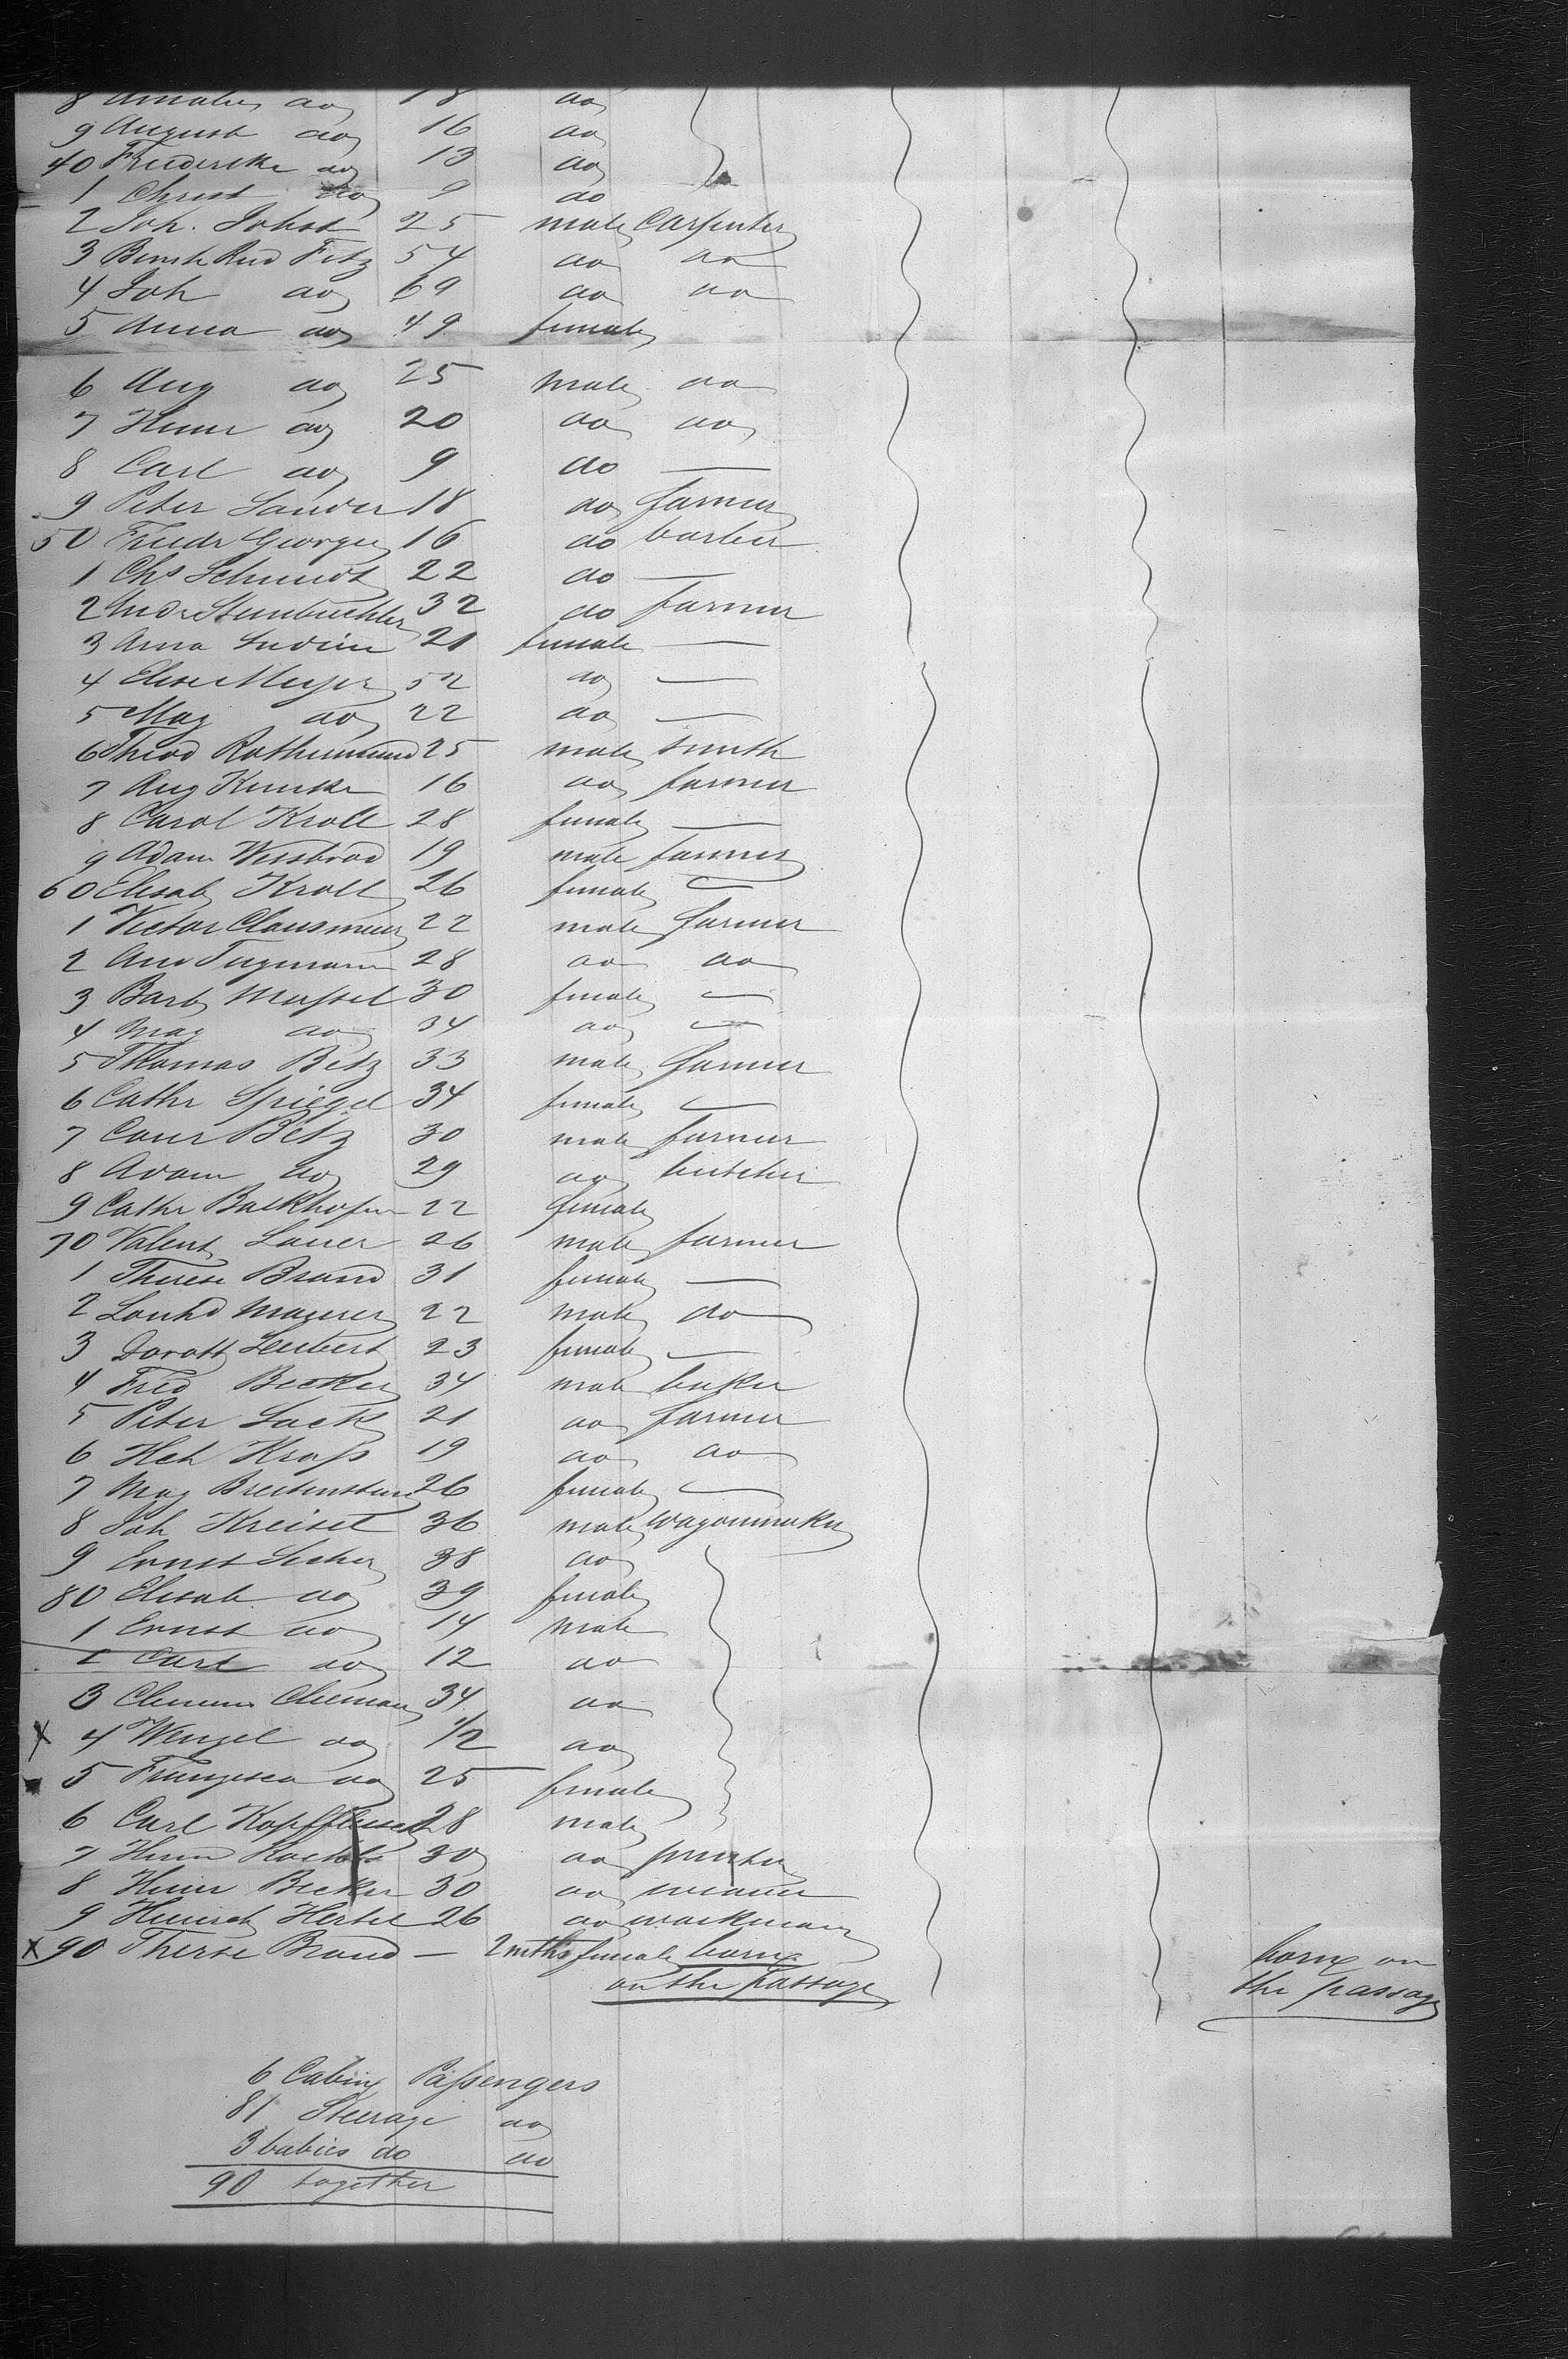 8 Amalie do 18 do
9 August do 16 do
40 Friederike do 13 do
1 Christ do 9 do
2 Joh. Johst 25 male Carpenter
3 Fitz 54 do do
4 Joh do 69 do do
5 Anna do 49 female
6 Aug do 25 male do
7 Henr do 20 do do
8 Carl do 9 do —
9 Peter Sander 18 do farmer
50 Friedr George 16 do barber
1 Chs Schmidt 22 do —
2 Andr Steinbuchler 32 do farmer
3 Anna 21 female —
4 Elise Meyer 52 do —
5 Mag do 22 do —
6 Theod Rothermund 25 male smith
7 Aug 16 do farmer
8 Carol Kroll 28 female —
9 Adam Weisbrod 19 male farmer
60 Elisab Kroll 26 female —
1 Victor Clausmeier 22 male farmer
2 28 do do
3 Barb Mussel 30 female —
4 Mag do 34 do —
5 Thomas Betz 33 male farmer
6 Cathr Spiegel 34 female —
7 Conr Betz 30 male farmer
8 Adam do 29 do butcher
9 Cathr Backhofen 22 female
70 Valent Lauer 26 male farmer
1 Therese Brand 31 female —
2 Maurer 22 male do
3 Doroth Seibert 23 female —
4 Fred Becker 34 male baker
5 Peter Sack 21 do farmer
6 Hch Krass 19 do do
7 Mag Breitenstein 26 female —
8 Joh Kreisel 36 male wagonmaker
9 Ernst 38 do
80 Elisab do 39 female
1 Ernst do 14 male
2 Carl do 12 do
3 Clemens 34 do
X 4 Wenzel do 1/2 do
5 Franzisca do 25 female
6 Carl Kopffleisch 28 male
7 Herm 30 do printer
8 Henr Becker 30 do weaver
9 Heinrich Hertel 26 do workman
X 90 Therse Brand — 2 mths female born
on the passage
born on
the passage
6 Cabin Passengers
81 Steerage do
3 babies do do
90 together